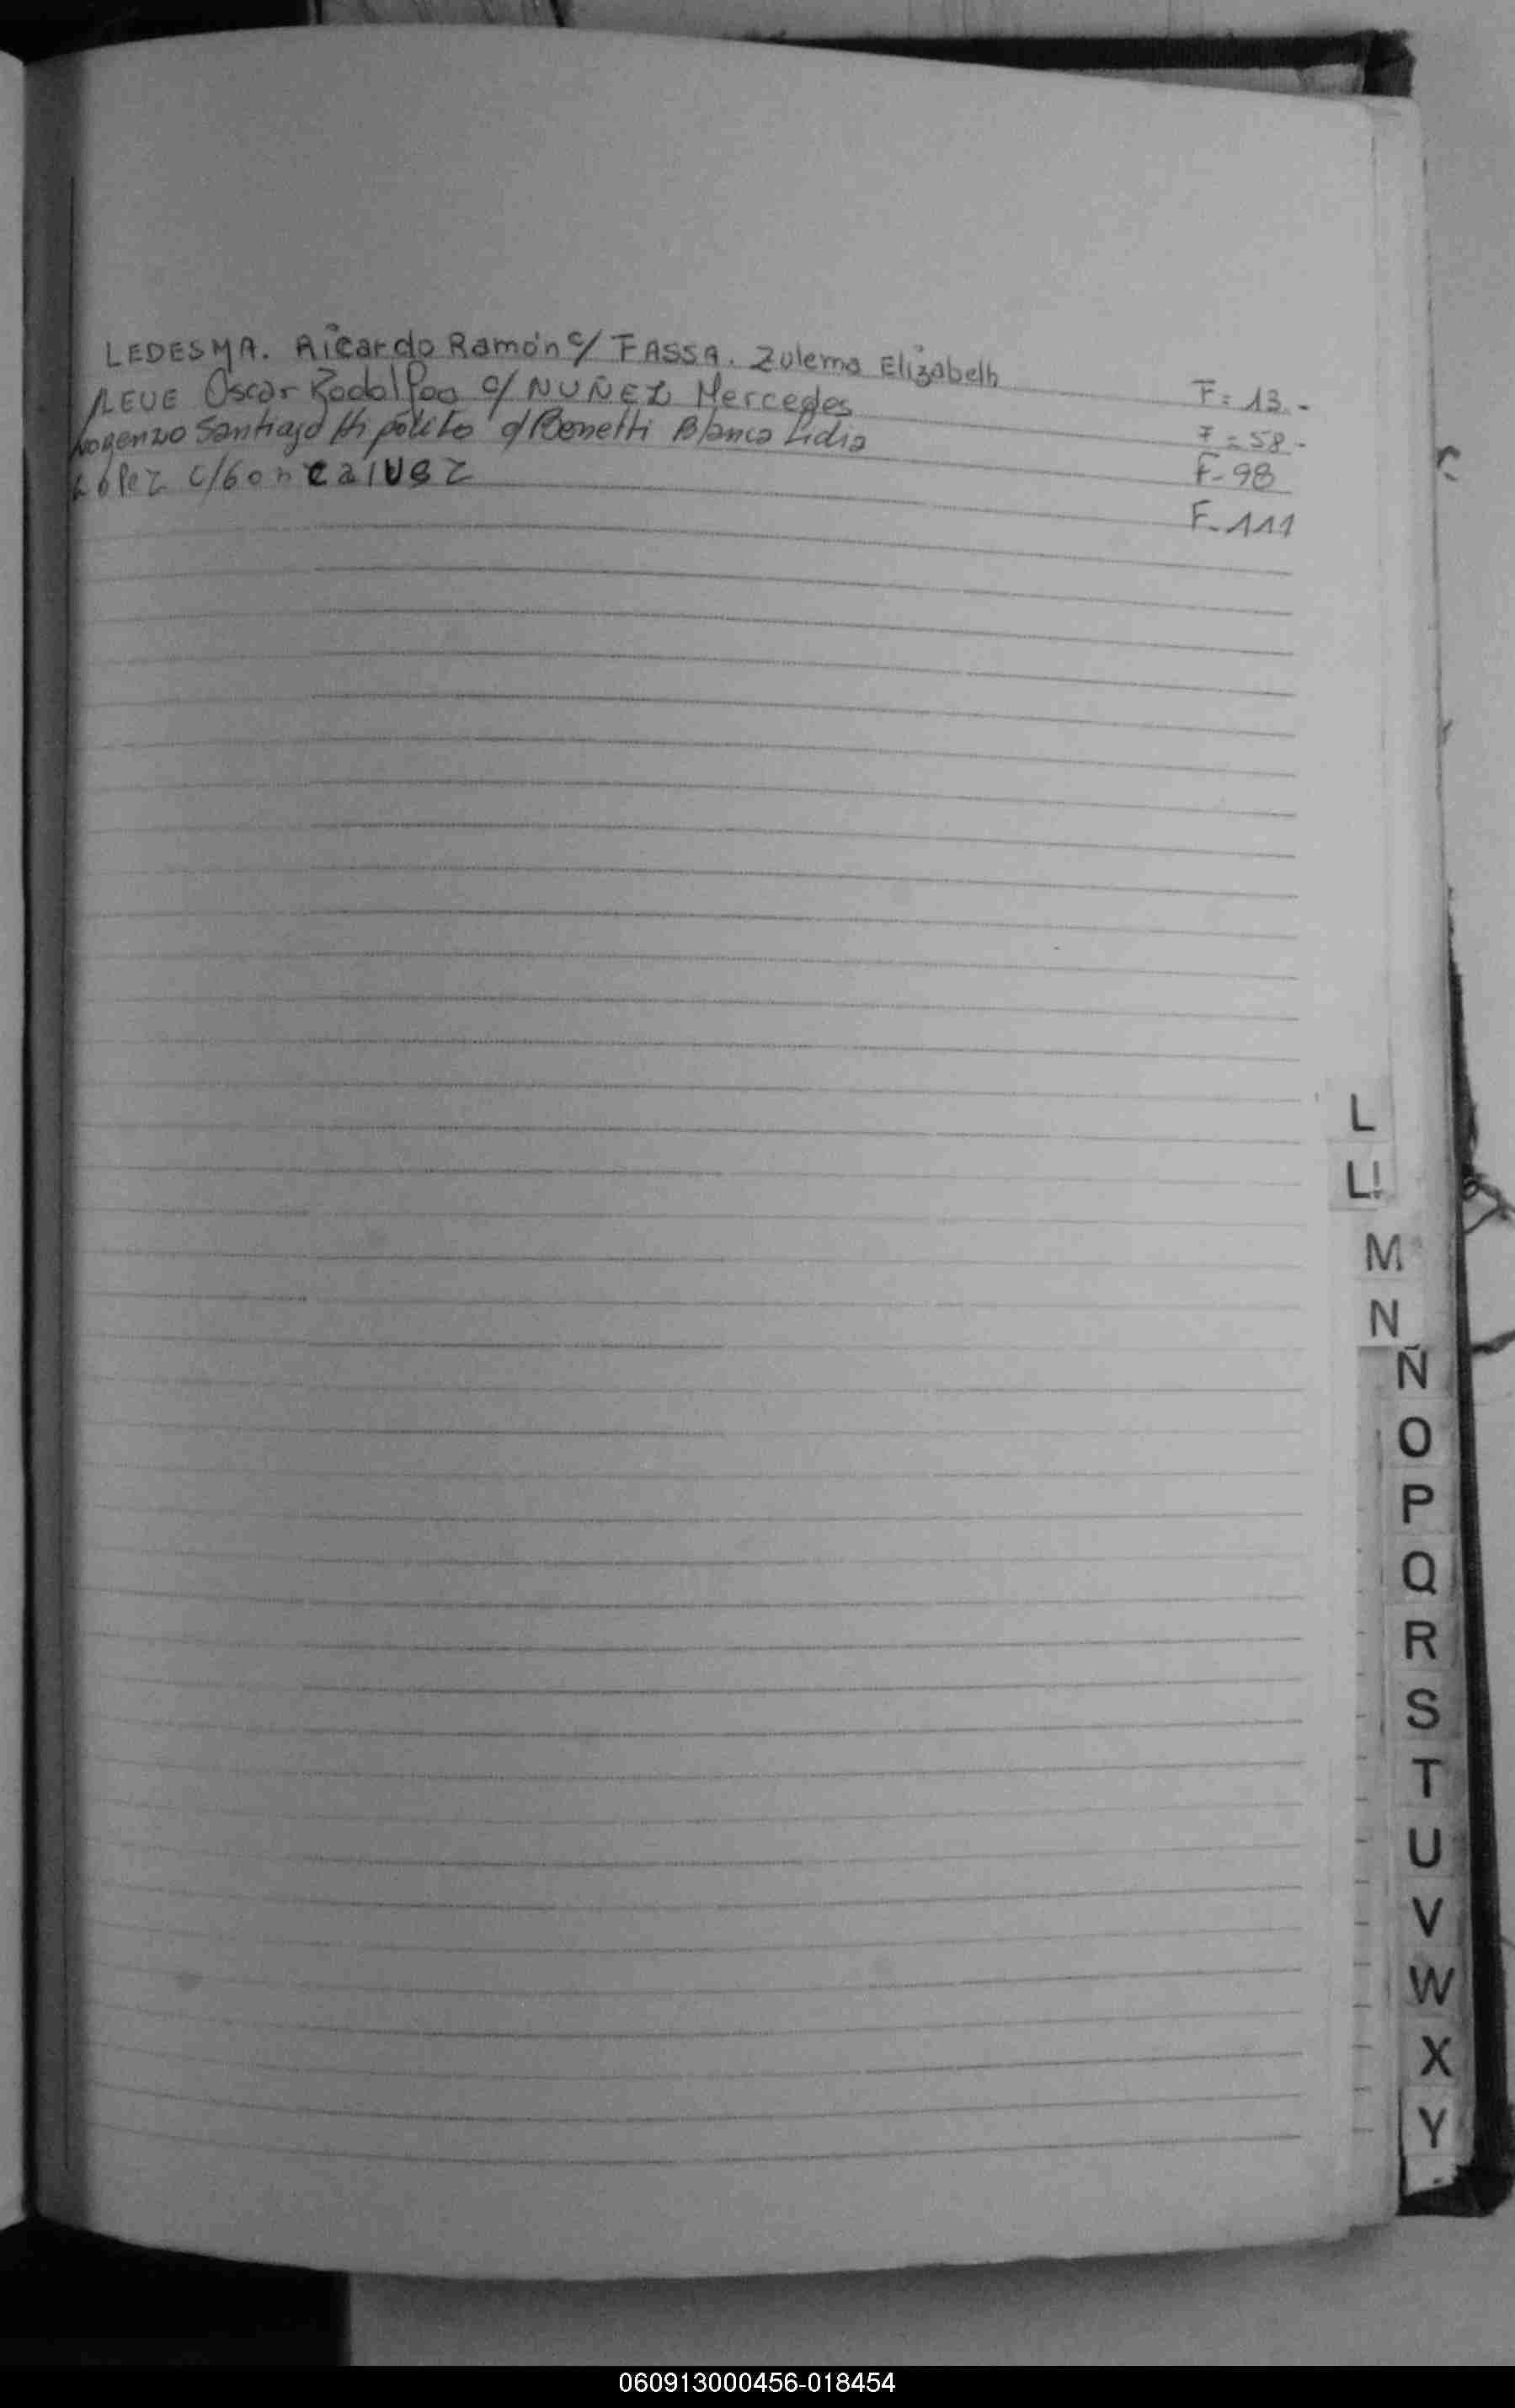 LEDESMA. Ricardo Ramón c/ FASSA. Zulema Elizabelh F= 13.-
LEUE Oscar Rodolfoo c/ NUÑEZ Mercedes F=58-
Lorenzo Santiago Hipólito c/ Bonetti Blanca Lidia F-98
López c/ Goncalvez F-111
L
LL
M
N
Ñ
O
P
Q
R
S
T
U
V
W
X
Y
060913000456-018454